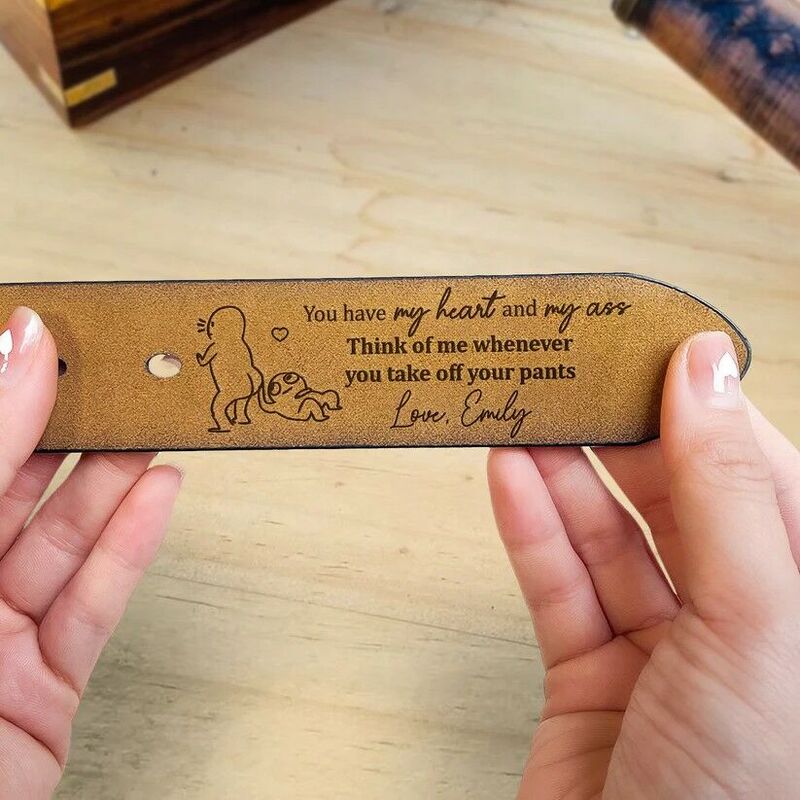 You have my heart and my ass
Think of me whenever
you take off your pants
Love, Emily